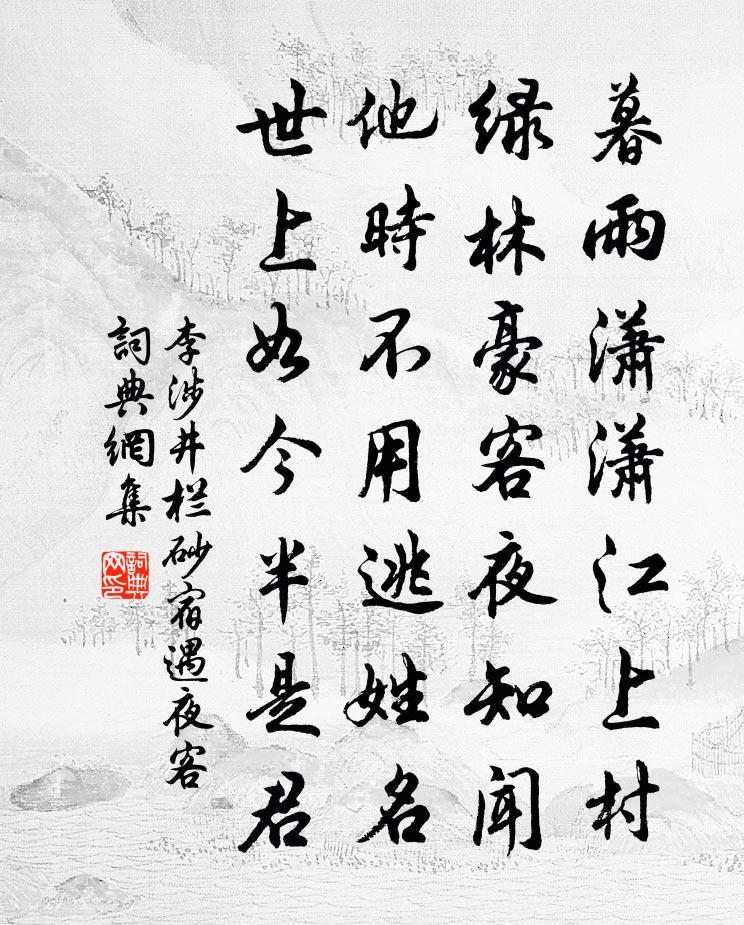 暮雨潇潇江上村
绿林豪客夜知闻
他時不用逃姓名
世上如今半是君
李涉井栏砂宿遇夜客
詞典網集
詞典网印